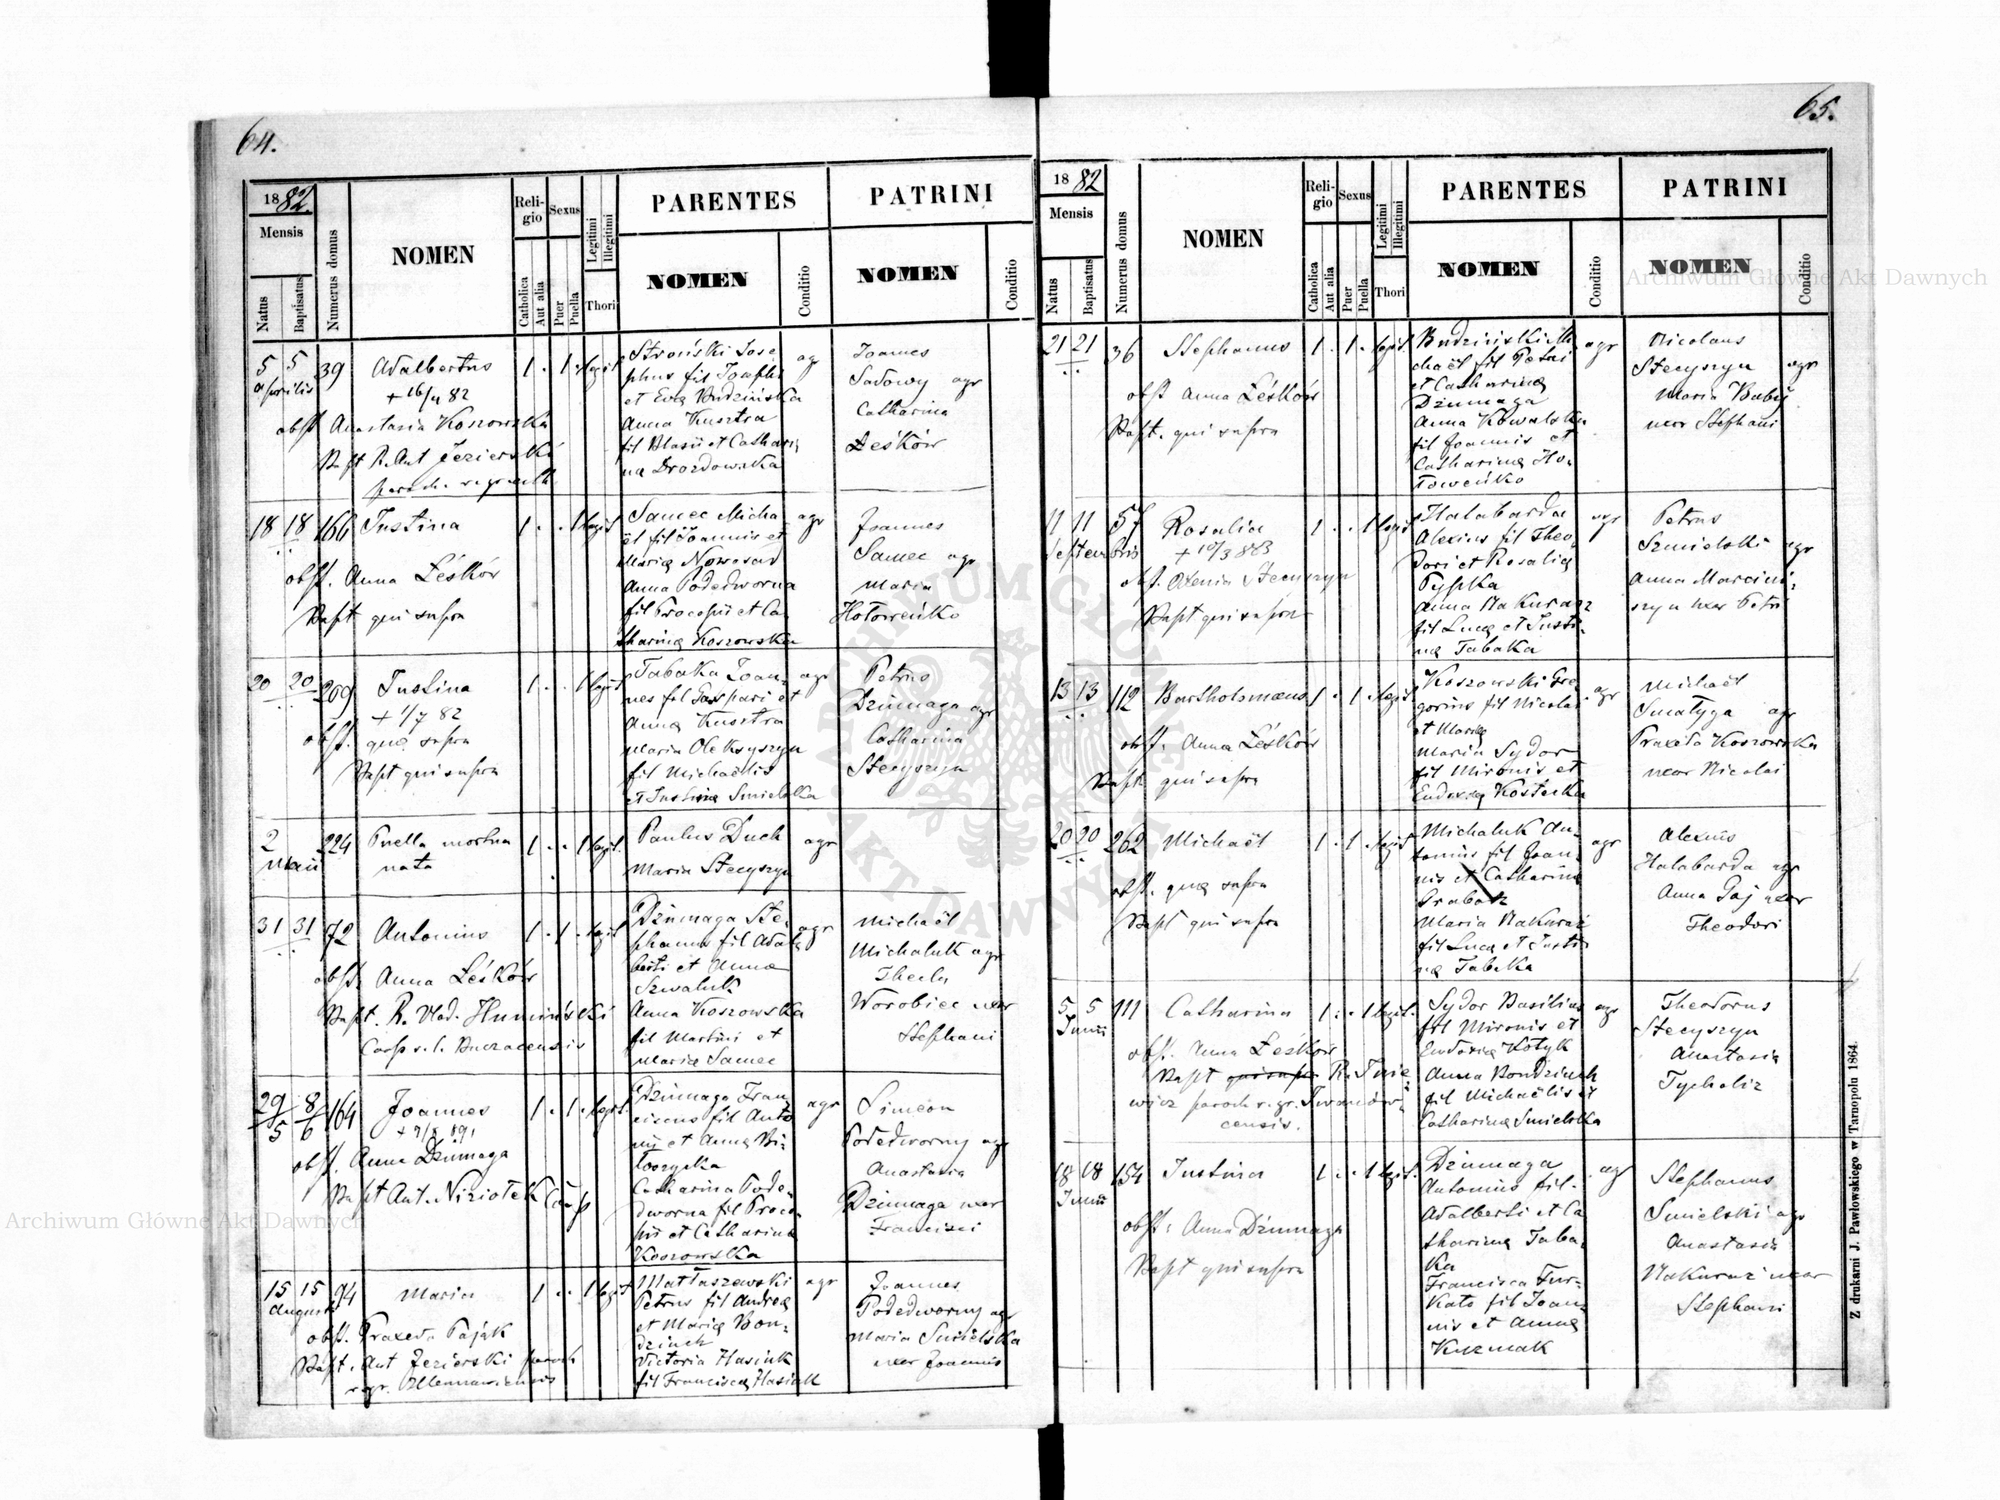 64.
1882.
Mensis
Natus
Baptisatus
Numerus domus
NOMEN
Reli-
gio
Catholica
Aut alia
Sexus
Puer
Puella
Legitimi
Illegitimi
Thori
PARENTES
NOMEN
Conditio
PATRINI
NOMEN
Conditio
5 5 39 Adalbertus 1 . 1 . legit.
aprilis
+ 16/4 82
obst Anastasia Koszowska
Bapt R. Ant Jezierski
Stroński Jose
phus fil Josephi
et Eva Budzińska
Anna Kusztra
fil Blasii et Cathari
na Drozdowska
agr
Joannes
Sadowy agr
Catharina
Leśków
18 18 166 Justina 1 . . 1 legit.
obst. Anna Leśków
Bapt qui supra
Samec Micha
ël fil Joannis et
Maria Nowosad
Anna Podedworna
fil Procopii et Ca
tharina Koszowska
agr
Joannes
Samec agr
Maria
Hołoweńko
20 20 209 Justina 1 . . 1 legit
+ 1/7 82
obst. quæ supra
Bapt qui supra
Tabaka Joan-
nes fil Gaspari et
Anna Kusztra
Maria Oleksyszyn
fil Michaëlis
et Justina Smielska
agr
Petrus
Dziumaga agr
Catharina
Stecyszyn
2 224 Puella mortua 1 . . 1 legit.
Maii nata
Paulus Duch
Maria Stecyszyn
agr
31 31 72 Antonius 1 . 1 . legit
obst. Anna Leśków
Bapt. R. Vlad. Humiński
Coop r. l. Buczacensis
Dziumaga Ste-
phanus fil Adal
berti et Anna
Szwaluk
Anna Koszowska
fil Martini et
Maria Samec
agr
Michaël
Michaluk agr
Thecla
Worobiec uxor
Stephani
29/5 8/6 164 Joannes 1 . 1 . legit.
obst. Anna Dziumaga
Bapt Ant. Niziołek Coop
Dziumaga Fran
ciscus fil Anto
nii et Anna Bi-
łoszycka
Catharina Pode-
dworna fil Proco-
pii et Catharina
Koszowska
agr
Simeon
Podedworny agr
Anastasia
Dziumaga uxor
Francisci
15 15 94 Maria 1 . . 1 legit
Augusti
obst. Praxeda Pająk
Bapt. Ant Jezierski paroch
Matłaszewski
Petrus fil Andrea
et Maria Bon-
dziuch
Victoria Hasiuk
fil Francisca Hasiuk
agr
Joannes
Podedworny agr
Maria Smielska
uxor Joannis
65.
1882
Mensis
Natus
Baptisatus
Numerus domus
NOMEN
Reli-
gio
Catholica
Aut alia
Sexus
Puer
Puella
Legitimi
Illegitimi
Thori
PARENTES
NOMEN
Conditio
PATRINI
NOMEN
Conditio
21 21 36 Stephanus 1 . 1 . legit.
obst Anna Leśków
Bapt. qui supra
Budziński Mi
chaël fil Petri
et Catharina
Dziumaga
Anna Kowalska
fil Joannis et
Catharina Ho-
łoweńko
agr
Nicolaus
Stecyszyn agr
Maria Babij
uxor Stephani
11 11 57 Rosalia 1 . . 1 legit.
Septembris
+ 10/3 883
obst. Xenia Stecyszyn
Bapt qui supra
Halabarda
Alexius fil Theo-
dori et Rosalia
Pypka
Anna Makurasz
fil Luca et Justi-
na Tabaka
agr
Petrus
Szmielski agr
Anna Marcini-
szyn uxor Petri
13 13 112 Bartholomæus 1 . 1 . legit.
obst. Anna Leśków
Bapt qui supra
Koszowski Gre
gorius fil Nicolai
et Maria
Maria Sydor
fil Mironis et
Eudoxia Kostecka
agr
Michaël
Smatyga agr
Praxeda Koszowska
uxor Nicolai
20 20 262 Michaël 1 . 1 . legit
obst. quæ supra
Bapt qui supra
Michaluk An-
tonius fil Joan-
nis et Catharina
Grabas
Maria Makuraz
fil Luca et Justi
na Tabaka
agr
Alexius
Halabarda agr
Anna Paj uxor
Theodori
5 5 111 Catharina 1 . . 1 legit.
Junii
obst. Anna Leśków
Bapt qui supra R.
wicz paroch r. gr. Iwanów-
censis.
Sydor Basilius
fil Mironis et
Eudoxia Kotyk
Anna Bondziuch
fil Michaëlis et
Catharina Smielska
agr
Theodorus
Stecyszyn
Anastasia
Tycholiz
18 18 154 Justina 1 . . 1 legit.
Junii
obst: Anna Dziumaga
Bapt qui supra
Dziumaga
Antonius fil.
Adalberti et Ca
tharina Taba-
ka
Francisca Fur-
kało fil Joan-
nis et Anna
Kuzmak
agr
Stephanus
Smielski agr
Anastasia
Makuraz uxor
Stephani
Z drukarni J. Pawłowskiego w Tarnopolu 1864.
Archiwum Główne Akt Dawnych
Archiwum Główne Akt Dawnych
ARCHIWUM GŁÓWNE AKT DAWNYCH